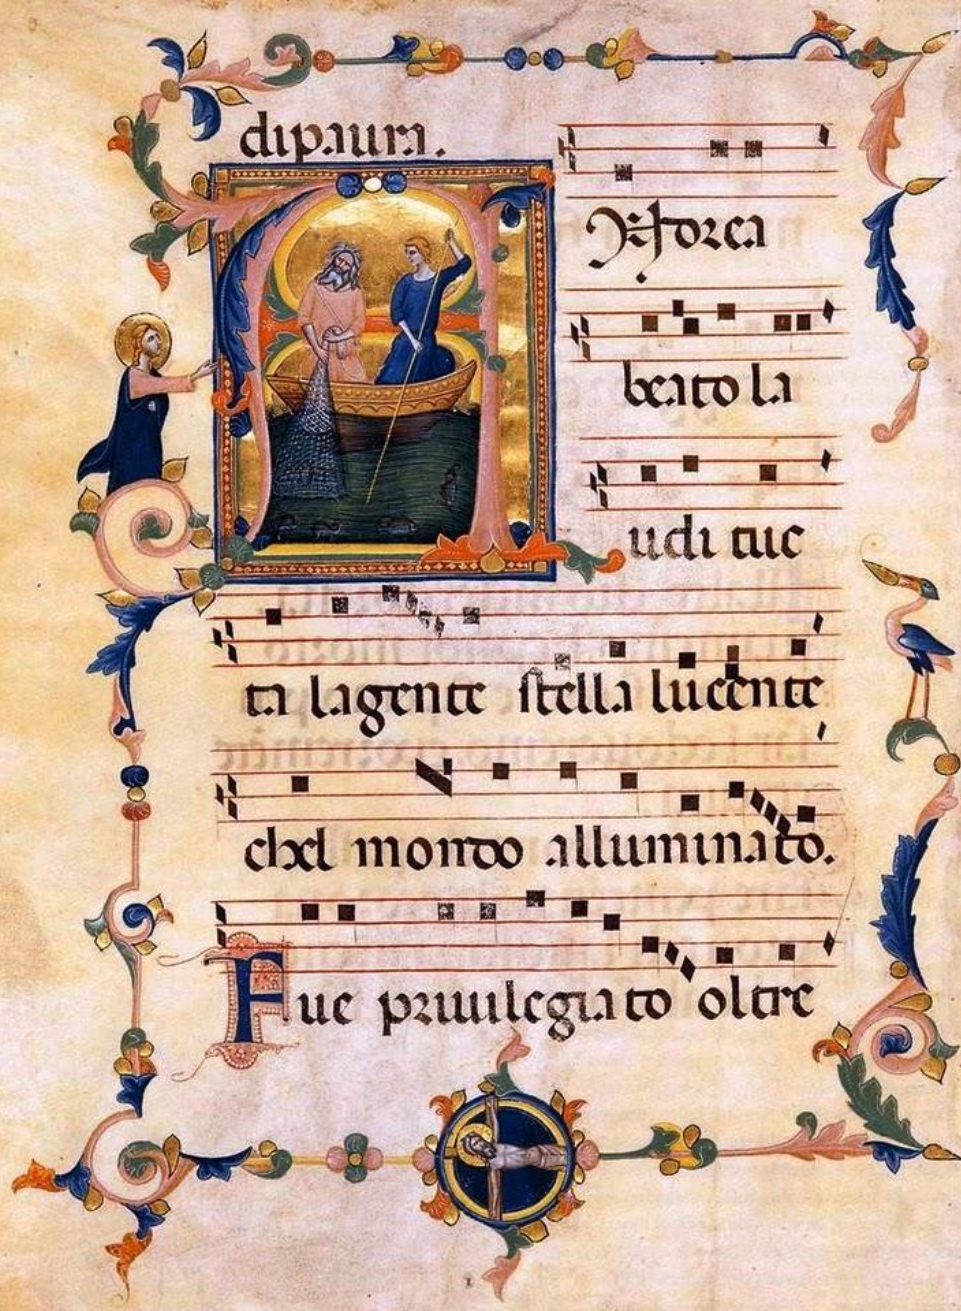 dipaura.
Andrea
beato la
udi tuc
ta lagente stella lucente
chel mondo alluminato.
Fue priuilegiato oltre